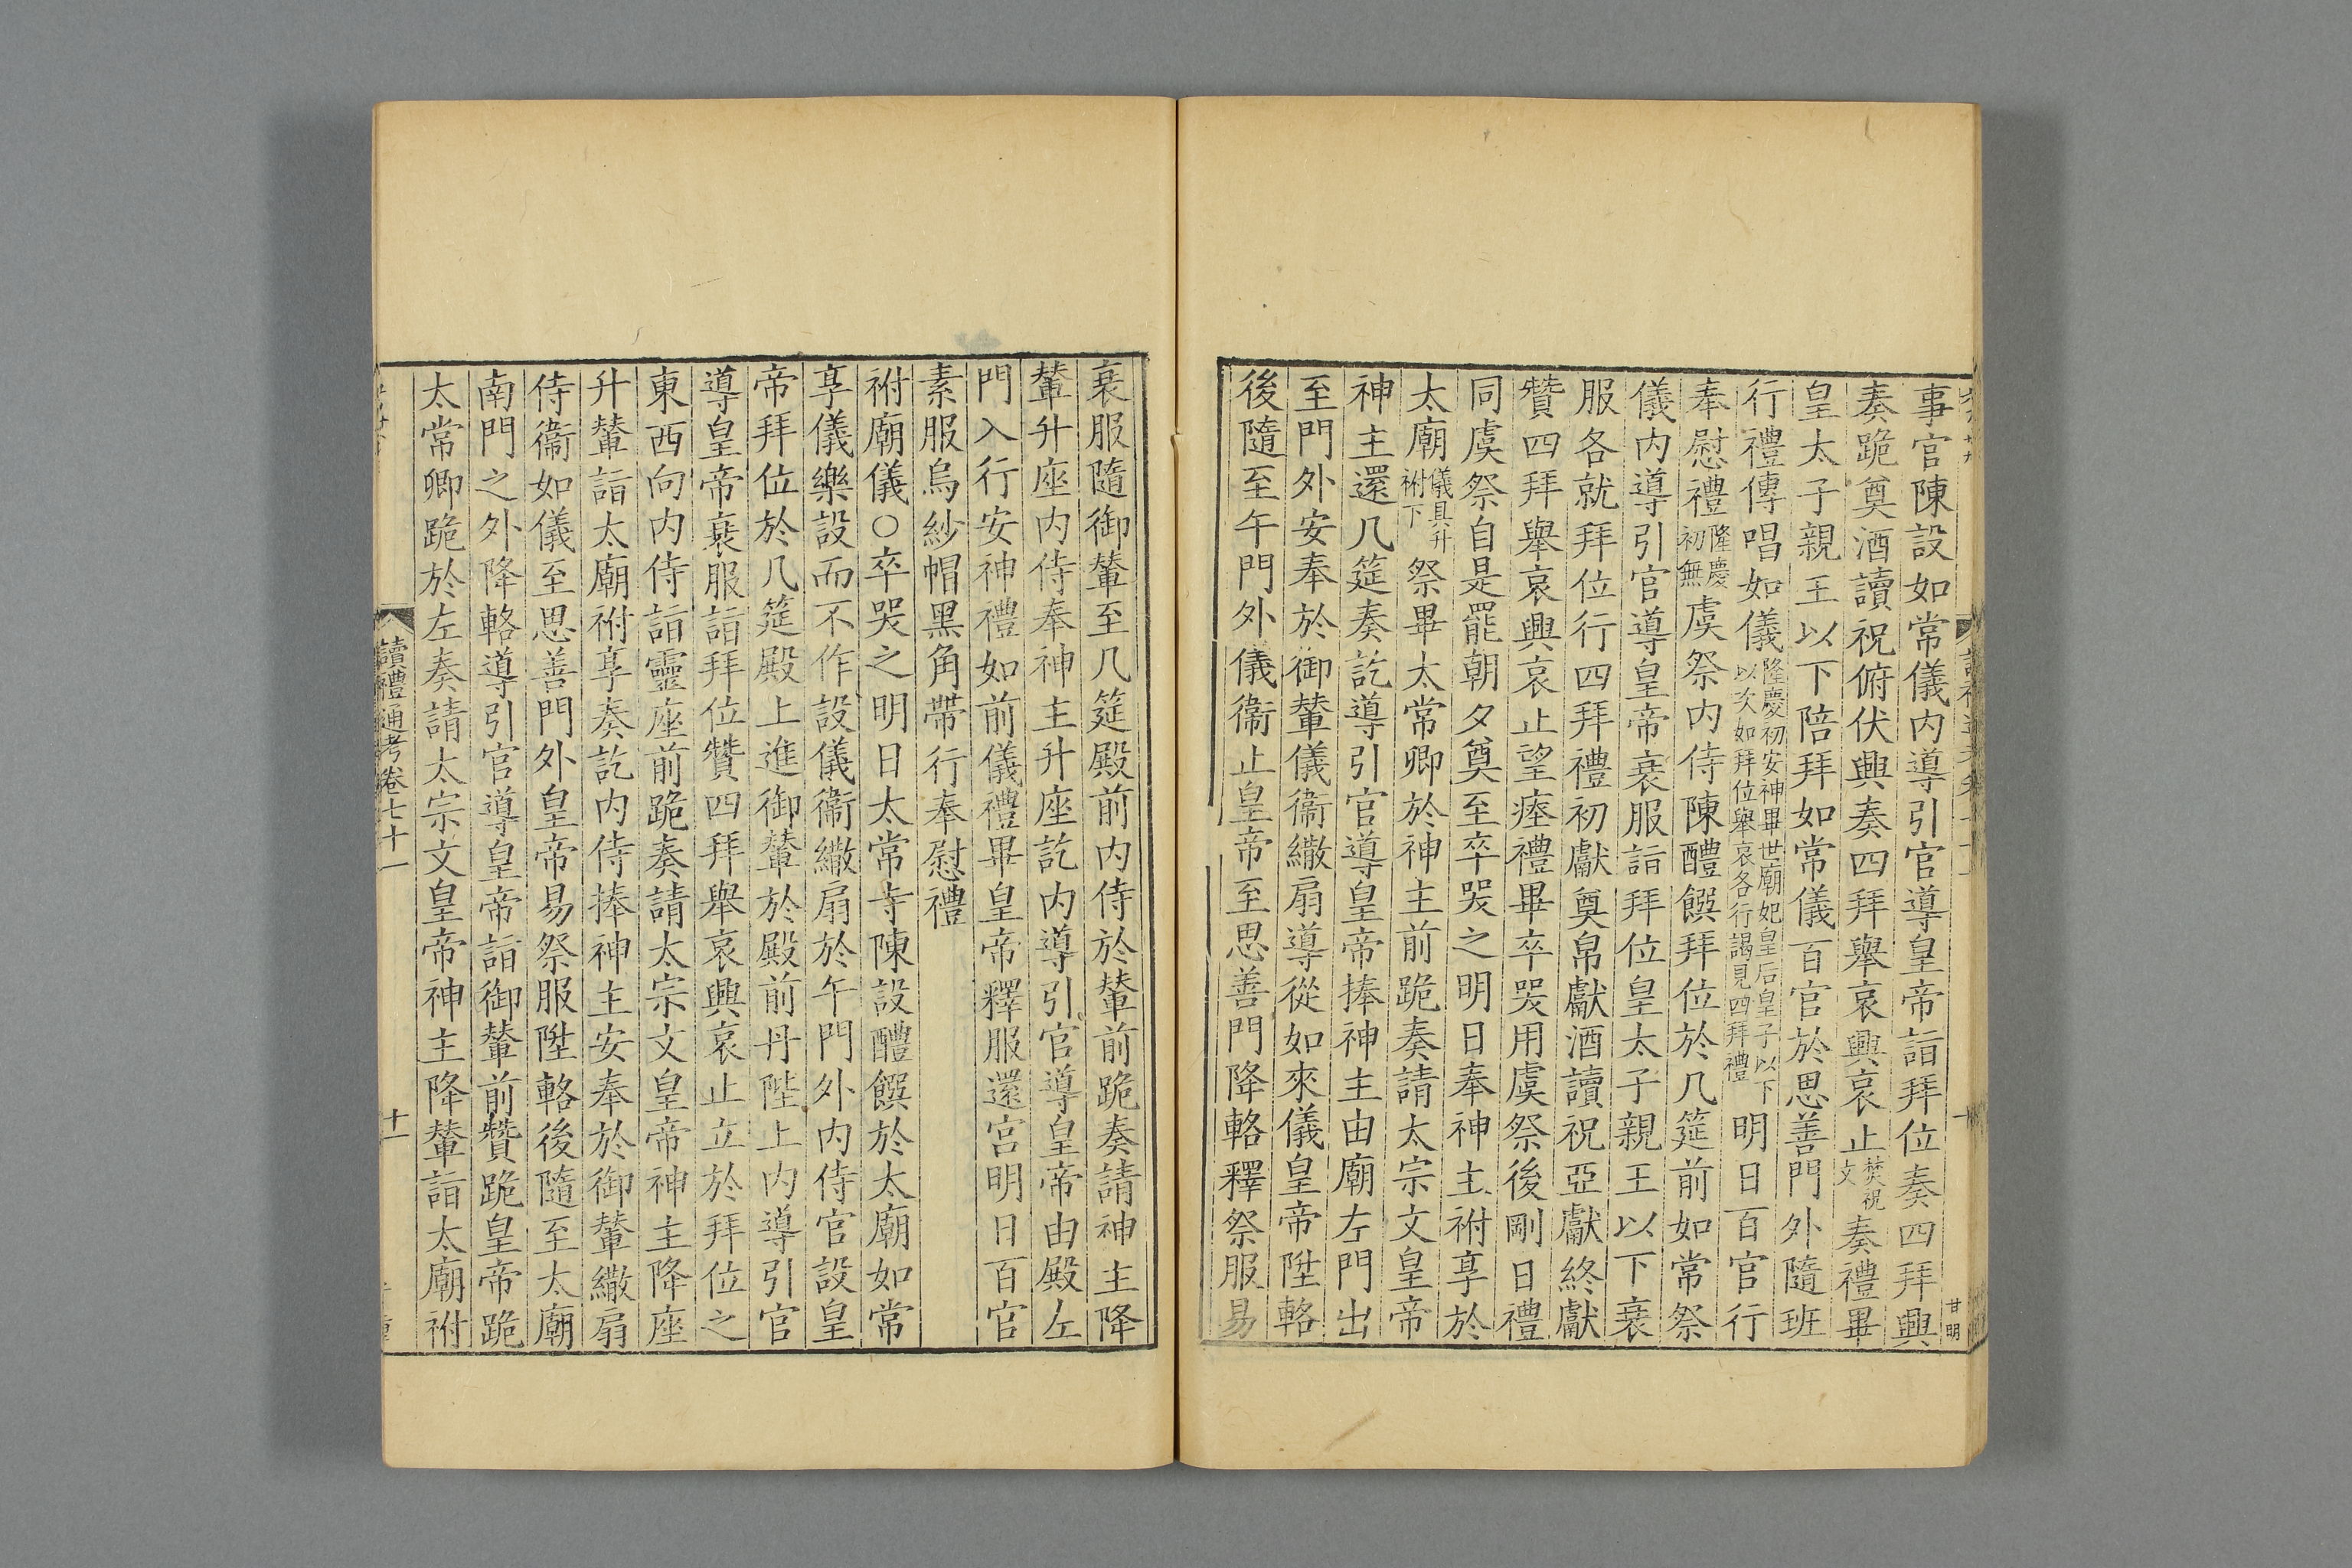 事官陳設如常儀内導引官導皇帝詣拜位奏四拜興
奏跪奠酒讀祝俯伏興奏四拜舉哀興哀止焚祝文奏禮畢
皇太子親王以下陪拜如常儀百官於思善門外隨班
行禮傳唱如儀隆慶初安神畢世廟妃皇后皇子以下以次如拜位舉哀各行謁見四拜禮明日百官行
奉慰禮隆慶初無虞祭内侍陳醴饌拜位於几筵前如常祭
儀内導引官導皇帝衰服詣拜位皇太子親王以下衰
服各就拜位行四拜禮初獻奠帛獻酒讀祝亞獻終獻
贊四拜舉哀興哀止望瘞禮畢卒哭用虞祭後剛日禮
同虞祭自是罷朝夕奠至卒哭之明日奉神主祔享於
太廟儀具升祔下祭畢太常卿於神主前跪奏請太宗文皇帝
神主還几筵奏訖導引官導皇帝捧神主由廟左門出
至門外安奉於御輦儀衞繖扇導從如來儀皇帝陞輅
後隨至午門外儀衞止皇帝至思善門降輅釋祭服易
甘明
衰服隨御輦至几筵殿前内侍於輦前跪奏請神主降
輦升座内侍奉神主升座訖内導引官導皇帝由殿左
門入行安神禮如前儀禮畢皇帝釋服還宮明日百官
素服烏紗帽黑角帶行奉慰禮
祔廟儀○卒哭之明日太常寺陳設醴饌於太廟如常
享儀樂設而不作設儀衞繖扇於午門外内侍官設皇
帝拜位於几筵殿上進御輦於殿前丹陛上内導引官
導皇帝衰服詣拜位贊四拜舉哀興哀止立於拜位之
東西向内侍詣靈座前跪奏請太宗文皇帝神主降座
升輦詣太廟祔享奏訖内侍捧神主安奉於御輦繖扇
侍衞如儀至思善門外皇帝易祭服陞輅後隨至太廟
南門之外降輅導引官導皇帝詣御輦前贊跪皇帝跪
太常卿跪於左奏請太宗文皇帝神主降輦詣太廟祔
讀禮通考卷七十一
十一